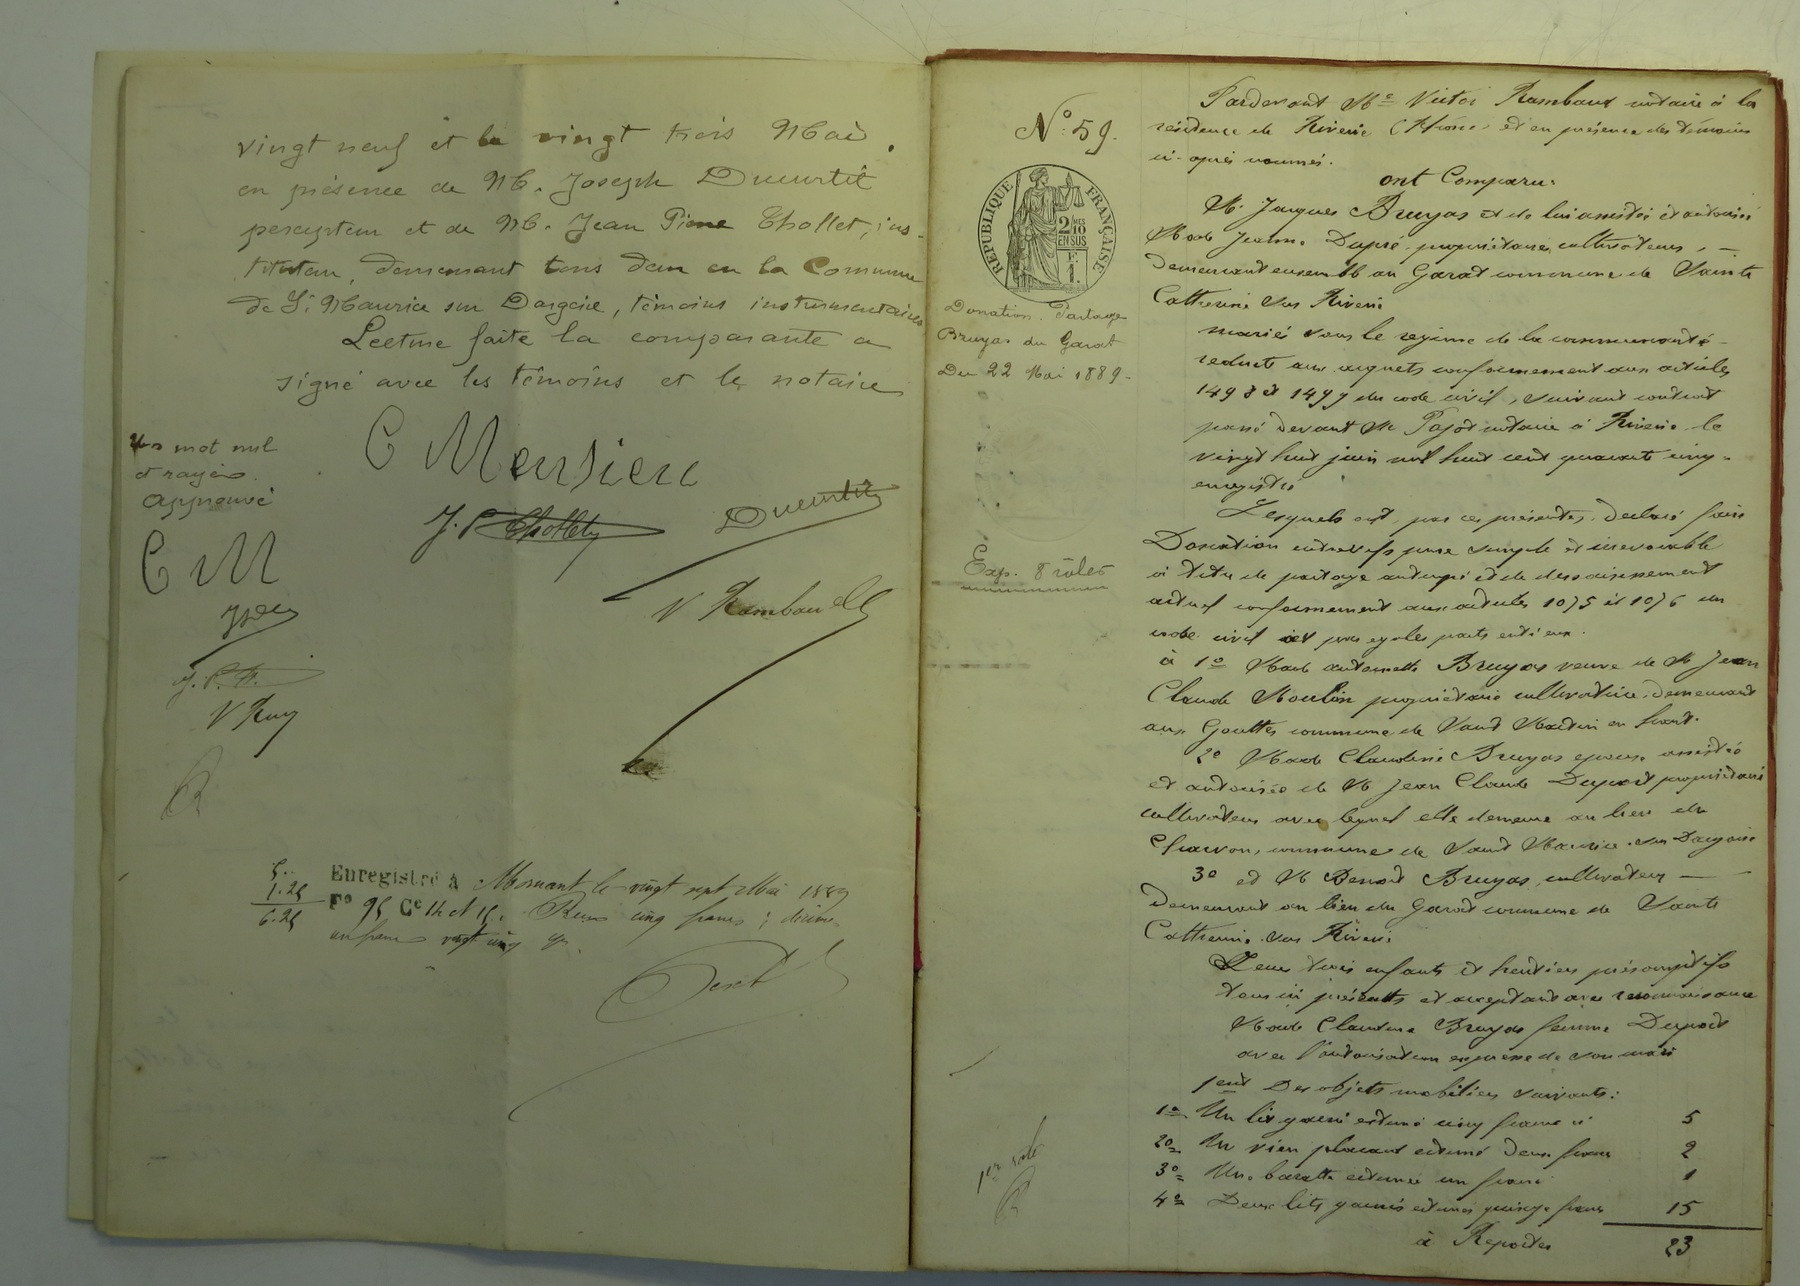 vingt neuf et le vingt trois Mai
en présence de M. Joseph Ducurtil
percepteur et de M. Jean Pierre Thollet, ins-
tituteur, demeurant tous deux en la Commune
de St Maurice sur Dargoire, témoins instrumentaires
Lecture faite la comparante a
signé avec les témoins et le notaire
Un mot nul
et rayés
approuvé
C M
J. P. T.
V Ramb
C Mersieu
J. P. Thollet
Ducurtil
V Rambaud
5..
1.25
6.25
Enregistré à Mornant le vingt sept Mai 1889
Fo 95, Ce 14 et 15. Reçu cinq francs; décime
un franc vingt cinq c.
No 59.
RÉPUBLIQUE FRANÇAISE
2/10
EN SUS
F.
1.
Donation. Partage
Bruyas du Garat
Du 22 Mai 1889-
Exp. 8 rôles
1er rôle
Pardevant Me Victor Rambaud notaire à la
résidence de Riverie (Rhône) et en présence des témoins
ci-après nommés.
ont Comparu:
M. Jacques Bruyas et de lui assistée et autorisée
Made Jeanne Dupré, propriétaires cultivateurs, —
demeurant ensemble au Garat commune de Sainte
Catherine sus Riverie
mariés sous le régime de la communauté-
réduite aux acquets conformément aux articles
1498 et 1499 du code civil, suivant contrat
passé devant Me Pajot notaire à Riverie le
vingt huit juin mil huit cent quarante cinq-
enregistré
Lesquels ont, par ces présentes, déclaré faire
Donation entrevifs pure simple et irrévocable
à titre de partage anticipé et de dessaisissement
actuel conformément aux articles 1075 et 1076 du
code civil et par egales parts entre eux.
à 1o Made antoinette Bruyas veuve de M Jean
Claude Moulin propriétaire cultivatrice, demeurant
aux Gouttes commune de Saint Martin en haut.
2o Made Claudine Bruyas epouse assistée
et autorisée de M Jean Claude Dupont propriétaire
cultivateur avec lequel elle demeure au lieu du
commune de Saint Maurice sur Dargoire
3o et M Benoit Bruyas, cultivateur —
demeurant au lieu du Garat commune de Sainte
Catherine sus Riverie
Leurs trois enfants et héritiers présomptifs
tous ici présents et acceptant avec reconnaissance
Made Claudine Bruyas femme Dupont
avec l'autorisation expresse de son mari
1ent Des objets mobiliers suivants:
1o Un lit garni estimé cinq francs ci 5
2o Un vieux placard estimé deux francs 2
3o Une baratte estimée un franc 1
4o Deux lits garnis estimés quinze francs 15
à Reporter 23